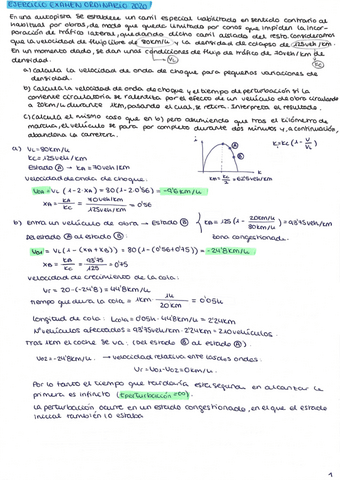 EJERCICIO EXAMEN ORDINARIO 2020
En una autopista se establece un carril especial habilitado en sentido contrario al
habitual por obras, de modo que queda limitado por conos que impiden la incor-
poración de tráfico lateral, quedando dicho carril aislado del resto. Considerando
que la velocidad de flujo libre de 80km/h y la densidad de colapso de 125veh/km.
En un momento dado, se dan unas condiciones de flujo de tráfico de 70veh/km de
densidad.
a) Calcula la velocidad de onda de choque para pequeñas variaciones de
densidad.
b) Calcula la velocidad de onda de choque y el tiempo de perturbación si la
corriente circulatoria se ralentiza por el efecto de un vehículo de obra circulando
a 20km/h durante 1km, pasando el cual, se retira. Interpreta el resultado.
c) Calcula el mismo caso que en b) pero asumiendo que tras el kilómetro de
marcha, el vehículo se para por completo durante dos minutos y, a continuación,
abandona la carretera.
a) VL = 80km/h
Kc = 125veh/km
Estado A → KA = 70veh/km
velocidad onda de choque:
= VL (1 - 2·xA) = 80(1 - 2·0'56) = -9'6km/h
xA = KA/Kc = 70veh/km / 125veh/km = 0'56
K = Kc (1 - V/VL)
Km = Kc/2 = 62'5veh/km
b) Entra un vehículo de obra → Estado B { KB = 125 (1 - 20km/h / 80km/h) = 93'75veh/km
zona congestionada.
Del estado A al estado B:
= VL (1 - (xA + xB)) = 80(1 - (0'56 + 0'75)) = -24'8km/h
xB = KB/Kc = 93'75/125 = 0'75
velocidad de crecimiento de la cola:
Vr = 20 - (-24'8) = 44'8km/h
tiempo que dura la cola = 1km · 1h/20km = 0'05h
longitud de cola: Lcola = 0'05h · 44'8km/h = 2'24km
Nº vehículos afectados = 93'75veh/km · 2'24km = 210vehículos.
Tras 1km el coche se va: (Del estado B al estado A)
= -24'8km/h. → velocidad relativa entre las dos ondas:
= 0km/h.
Por lo tanto el tiempo que tardaría esta segunda en alcanzar la
primera es infinito (tperturbación = ∞).
La perturbación ocurre en un estado congestionado, en el que el estado
inicial también lo estaba
1